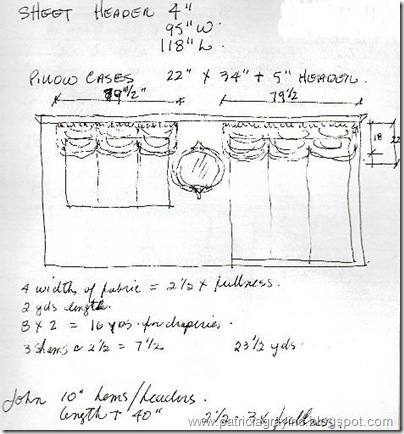 SHEET HEADER 4"
95" W.
118" L.
PILLOW CASES 22" x 34" + 5" HEADER.
79 1/2" 79 1/2
18 22
4 widths of fabric = 2 1/2 x fullness.
2 yds length.
8 x 2 = 16 yds. for draperies.
3 Shams @ 2 1/2 = 7 1/2 23 1/2 yds.
John 10" hems/headers.
length + 40" 2 1/2 - 3x fullness.
www.patriciagrayinc.blogspot.com